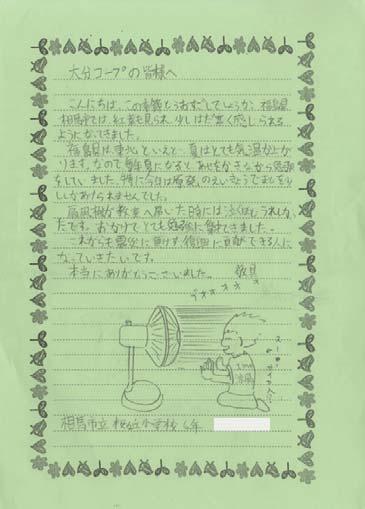 大分コープの皆様へ
こんにちは。この季節どうおすごしでしょうか。福島県
相馬市では、紅葉も見られ、少しはだ寒く感じられる
ようになってきました。
福島県は東北といえど、夏はとても気温が上が
ります。なので毎年夏になると、あせをかきながら勉強
をしていました。特に今年は原発のえいきょうでまどを少
ししかあけられませんでした。
扇風機が教室へ届いた時には、うれし
かったです。おかげでとても勉強に集中できました。
これからも震災に負けず、復興に貢献できる人に
なっていきたいです。
本当にありがとうございました。 敬具
ブオオオオ
相馬市立 桜丘小学校 6年